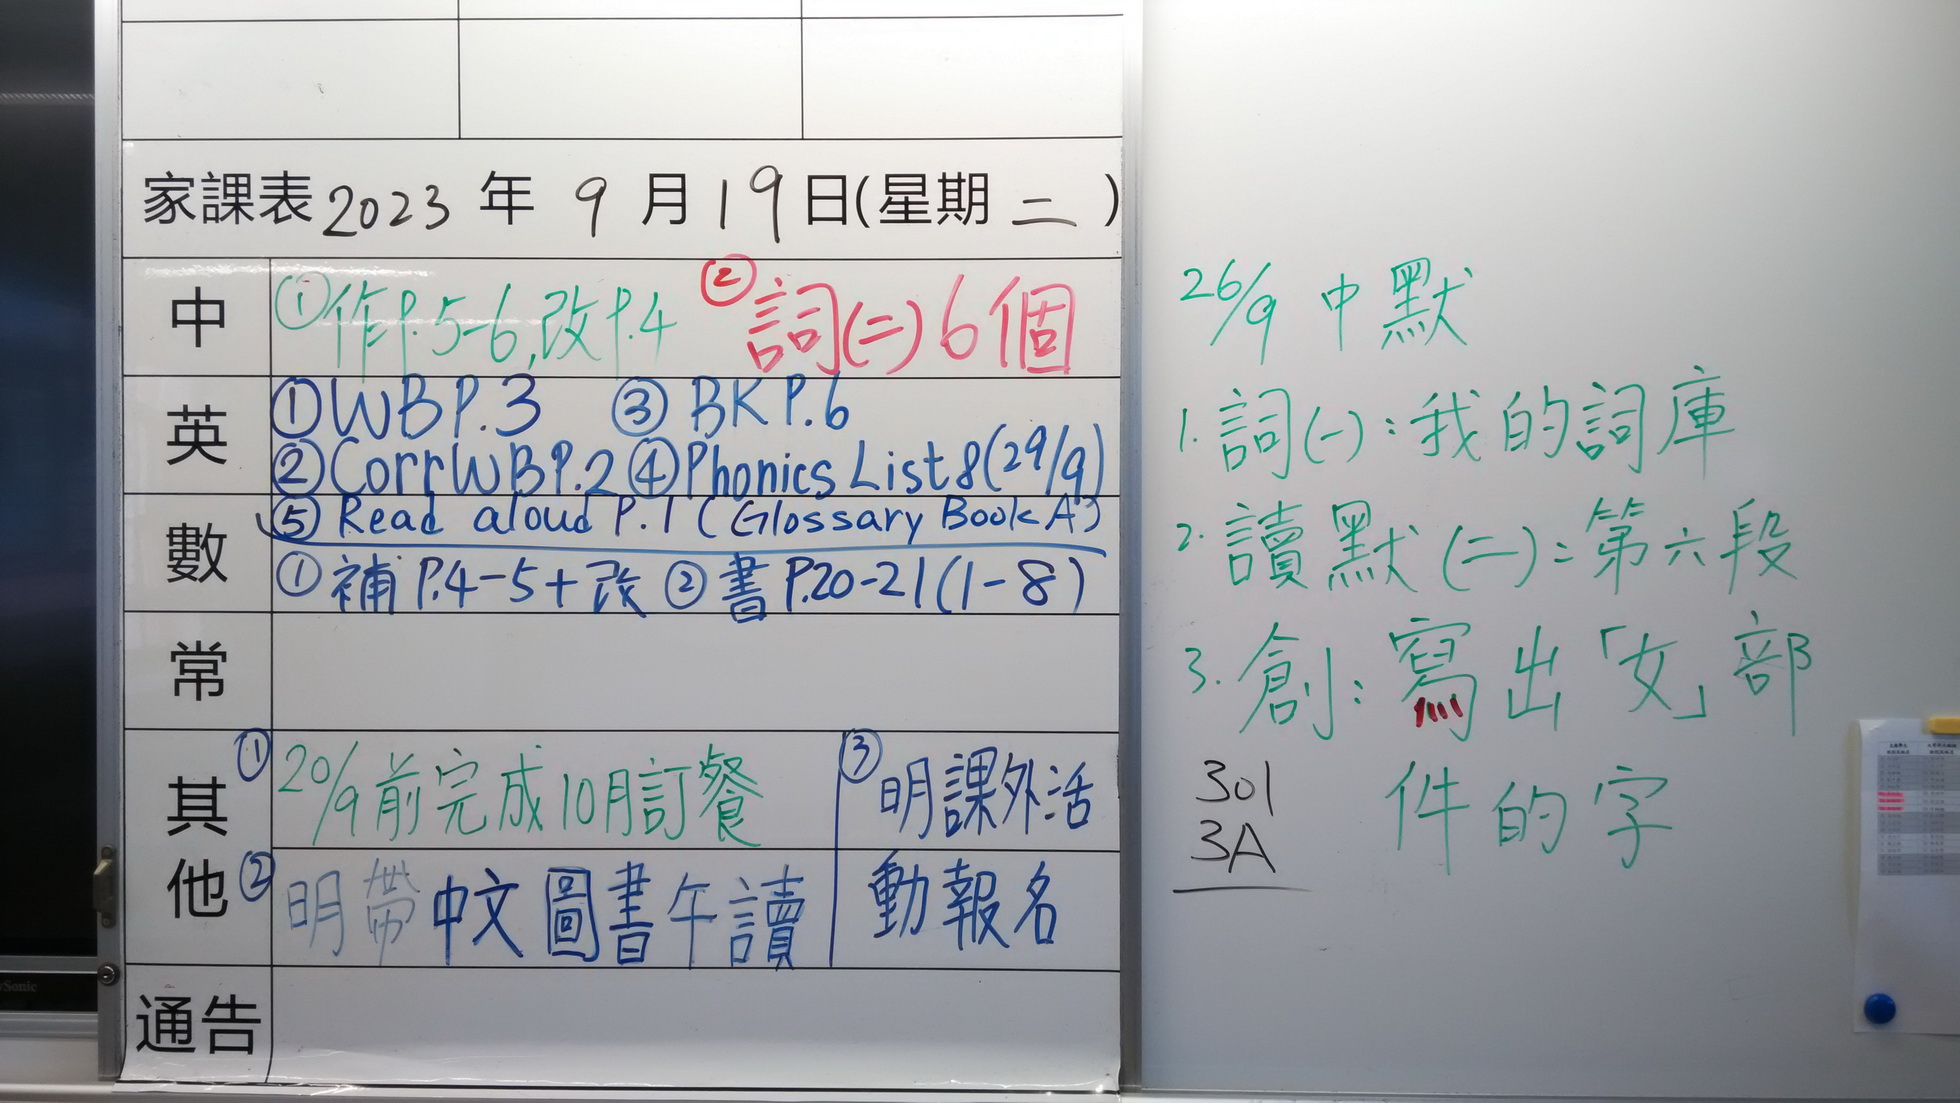 家課表 2023 年 9 月 19 日(星期 二 )
中
①作P.5-6,改P.4 ②詞(二)6個
英
①WBP.3 ③BKP.6
②CorrWBP.2 ④Phonics List8(29/9)
⑤Read aloud P.1 (Glossary Book A)
數
①補P.4-5+改 ②書P.20-21(1-8)
常
其他
①20/9前完成10月訂餐
②明帶中文圖書午讀
③明課外活
動報名
通告
26/9 中默
1.詞(一):我的詞庫
2.讀默(二):第六段
3.創:寫出「女」部
件的字
301
3A